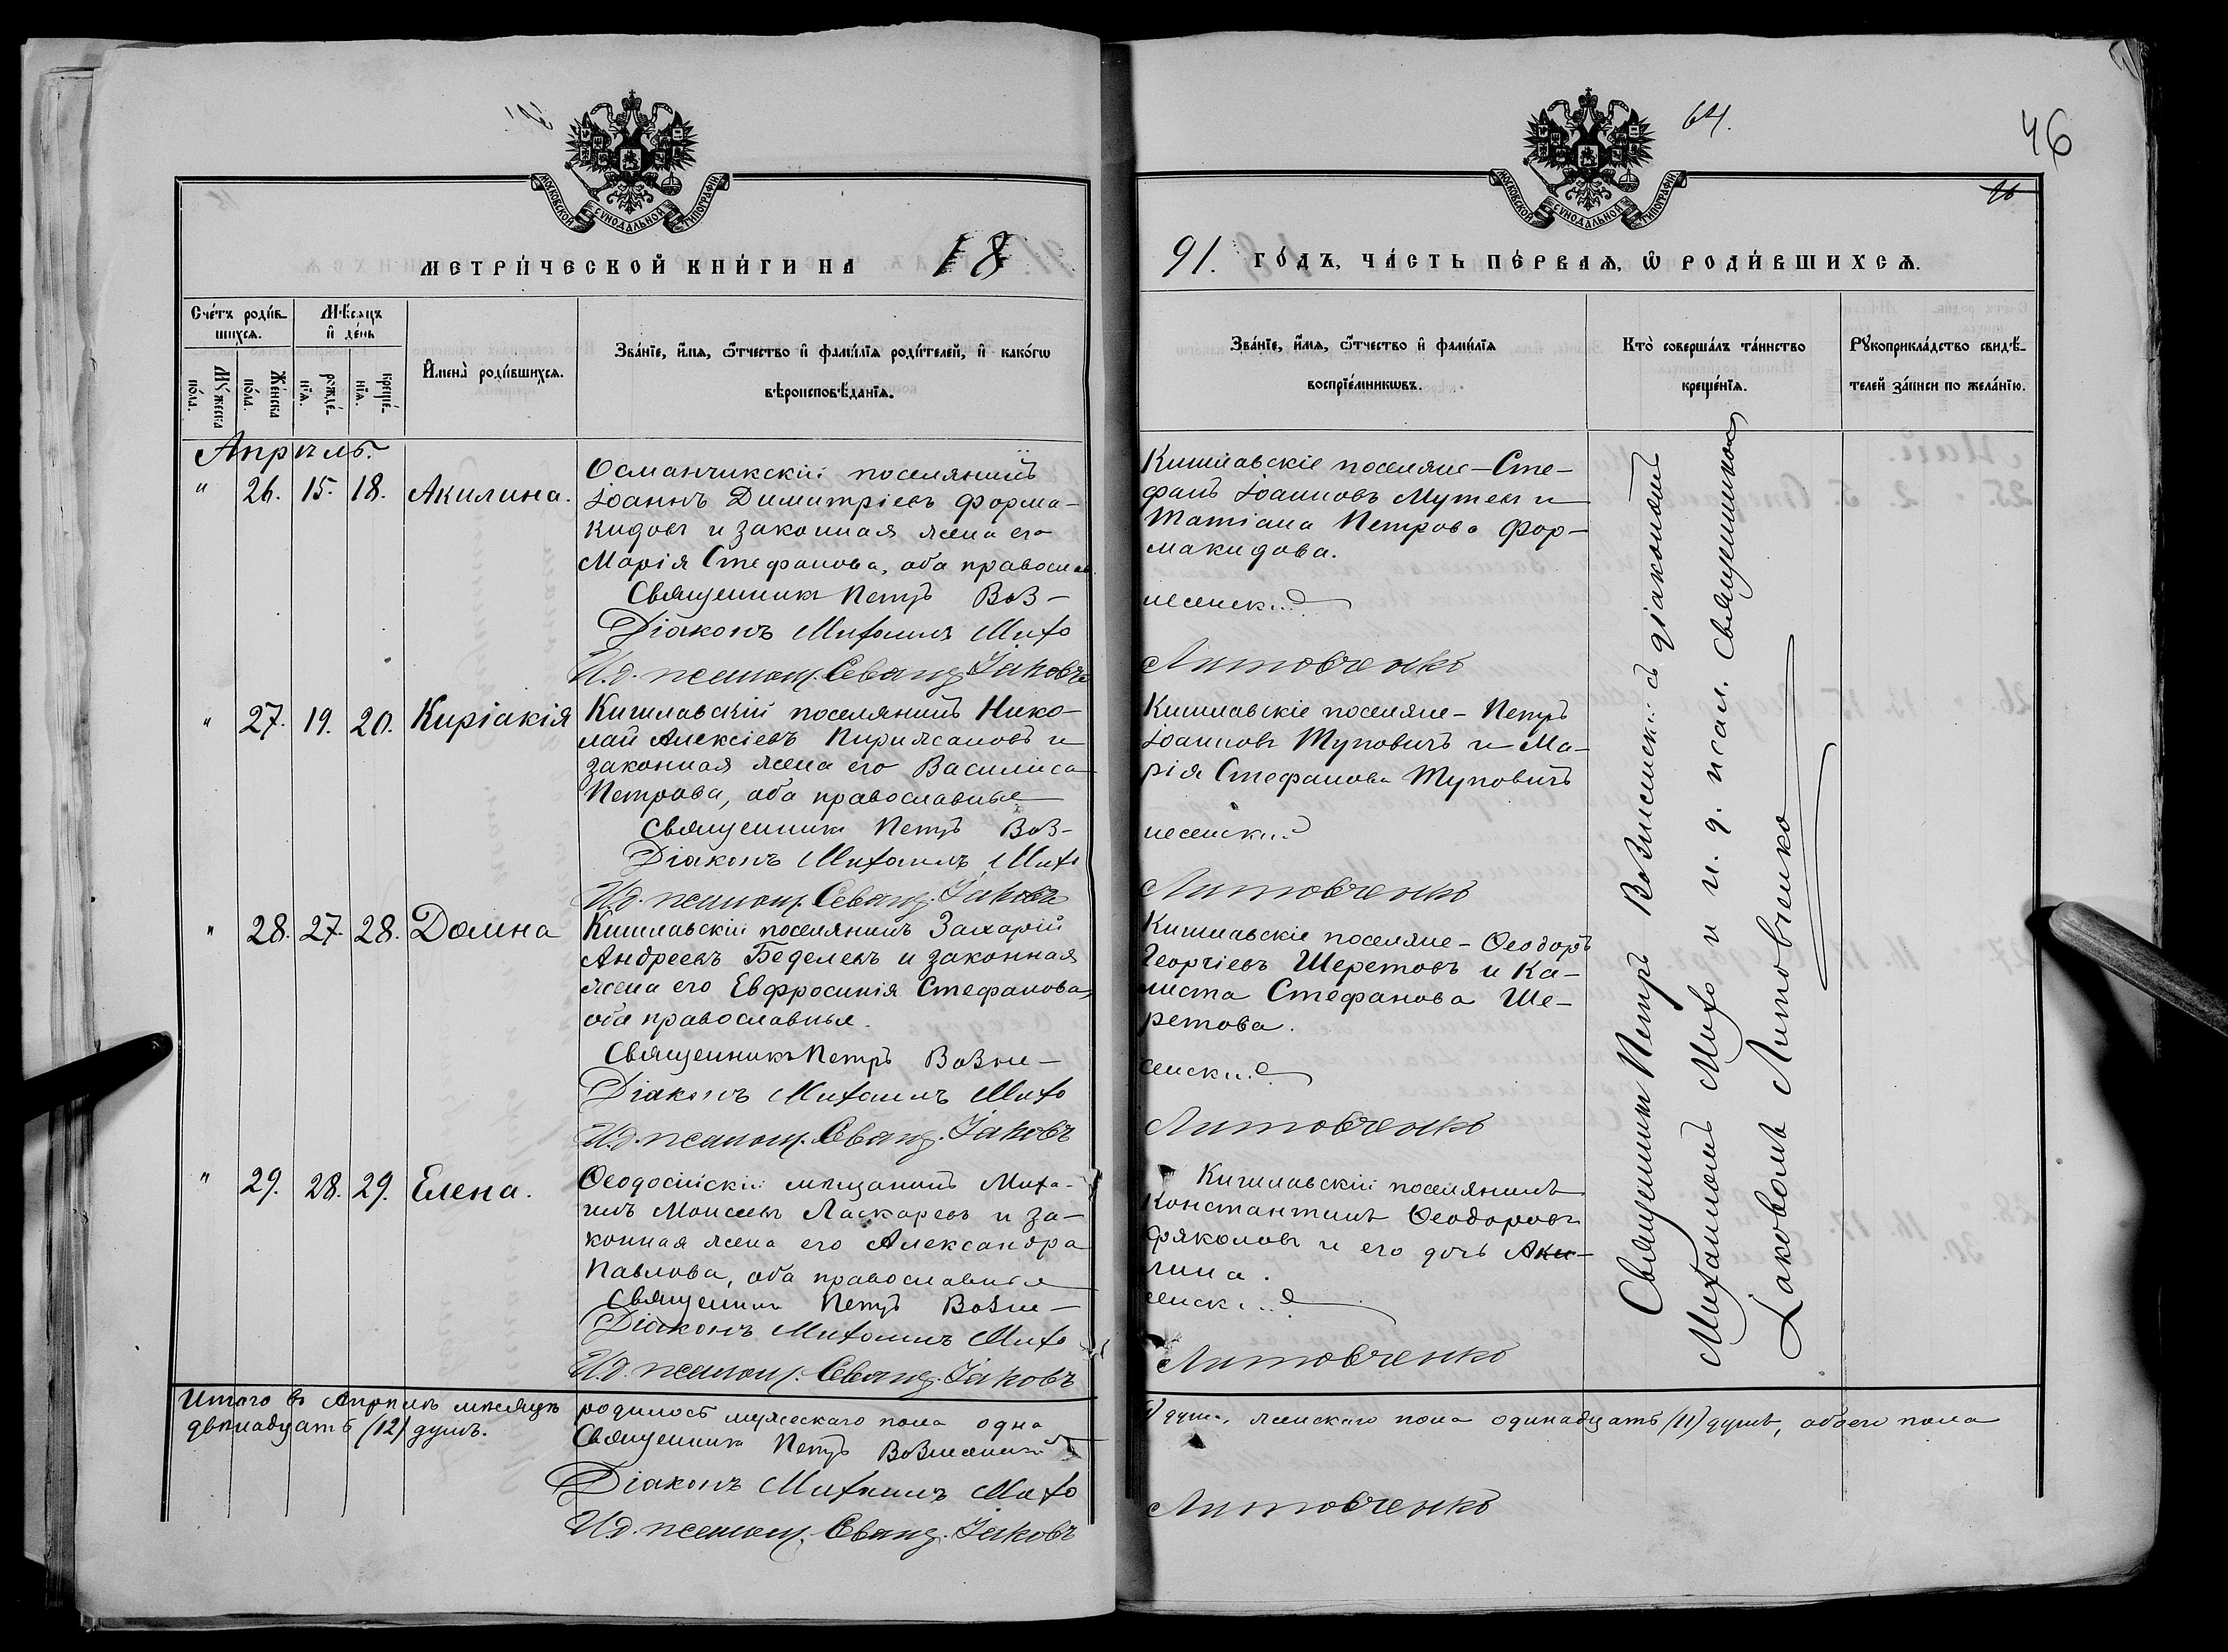 64.
46
МОСКОВСКОЙ СУНОДАЛЬНОЙ ТИПОГРАФІИ
МОСКОВСКОЙ СУНОДАЛЬНОЙ ТИПОГРАФІИ
МЕТРИ́ЧЕСКОЙ КНИ́ГИ НА 18
91. ГО́ДЪ, ЧА́СТЬ ПЕ́РВАѦ, Ѡ РОДИ́ВШИХСѦ.
Сче́тъ роди́в-
шихсѧ.
Мѣ́сѧцъ
и҆ де́нь
Мꙋ́жеска
по́ла.
Же́нска
по́ла.
рожде́-
нїѧ.
креще́-
нїѧ.
И҆мена̀ роди́вшихсѧ.
Зва́нїе, и҆́мѧ, ѻ҆́тчество и҆ фамѝлїѧ роди́телей, и҆ како́гѡ
вѣроисповѣ́данїѧ.
Зва́нїе, и҆́мѧ, ѻ҆́тчество и҆ фамѝлїѧ
воспрїе́мникѡвъ.
Кто̀ соверша́лъ та́инство
креще́нїѧ.
Рꙋкоприкла́дство свидѣ́-
телей за́писи по жела́нїю.
Апрѣль.
" 26. 15. 18. Акилина.
Османчикскій поселянинъ
Іоаннъ Димитріевъ Форма-
кидовъ и законная жена его
Марія Стефанова, оба православ
Священникъ Петръ Воз-
Діаконъ Михаилъ Михо
И.д. псаломщ. Свящ. Іаковъ
Кишлавскіе поселяне - Сте-
фанъ Іоанновъ Мутевъ и
Татіана Петрова Фор-
макидова.
несенскій
Литовченко
" 27. 19. 20. Киріакія
Кишлавскій поселянинъ Нико-
лай Алексіевъ Пирижановъ и
законная жена его Василиса
Петрова, оба православные
Священникъ Петръ Воз-
Діаконъ Михаилъ Михо
И.д. псаломщ. Свящ. Іаковъ
Кишлавскіе поселяне - Петръ
Іоанновъ Туповичъ и Ма-
рія Стефанова Туповичъ
несенскій
Литовченко
" 28. 27. 28. Домна
Кишлавскій поселянинъ Захарій
Андреевъ Беделевъ и законная
жена его Евфросинія Стефанова,
оба православные.
Священникъ Петръ Возне-
Діаконъ Михаилъ Михо
И.д. псаломщ. Свящ. Іаковъ
Кишлавскіе поселяне - Ѳеодоръ
Георгіевъ Шеретовъ и Ка-
листа Стефанова Ше-
ретова.
сенскій
Литовченко
" 29. 28. 29. Елена.
Ѳеодосійскій мѣщанинъ Миха-
илъ Моисеевъ Ласкаревъ и за-
конная жена его Александра
Павлова, оба православные
Священникъ Петръ Возне-
Діаконъ Михаилъ Михо
И.д. псаломщ. Свящ. Іаковъ
Кишлавскій поселянинъ
Константинъ Ѳеодоровъ
Фяколовъ и его дочь Аки-
лина.
сенскій
Литовченко
Священникъ Петръ Вознесенскій съ діакономъ
Михаиломъ Михо и и. д. псал. священникомъ
Іаковомъ Литовченко
Итого въ Апрѣлѣ мѣсяцѣ родилось мужескаго пола одна 1) душа, женскаго пола одинадцать (11) душъ, обоего пола
двѣнадцать (12) душъ.
Священникъ Петръ Вознесенскій
Діаконъ Михаилъ Михо
И.д. псаломщ. Свящ. Іаковъ Литовченко